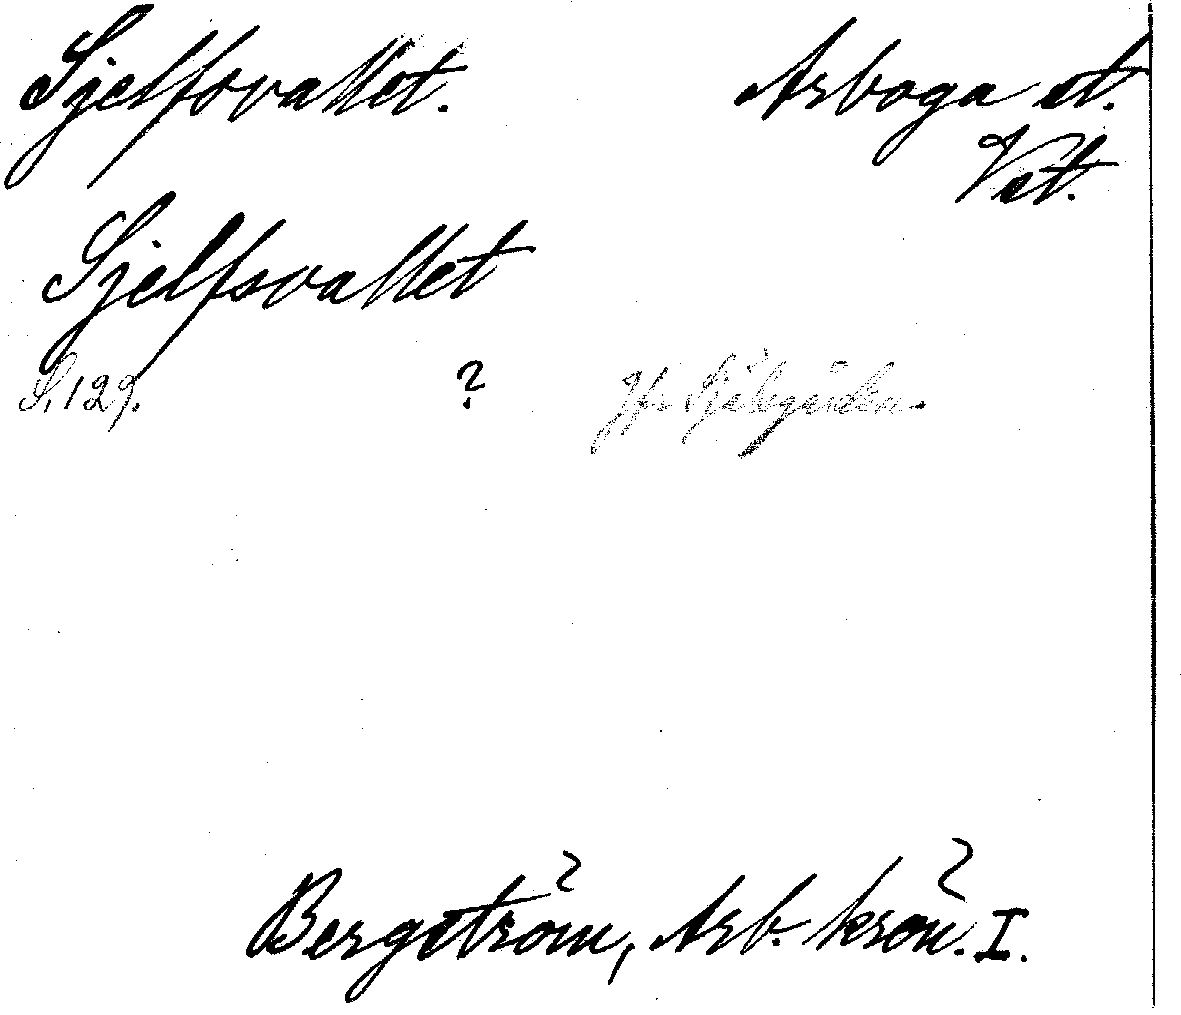 Sjelfsvallet. Arboga st.
Vst.
Sjelfsvallet
S. 129. ? Jfr
Bergström, Arb. krön. I.